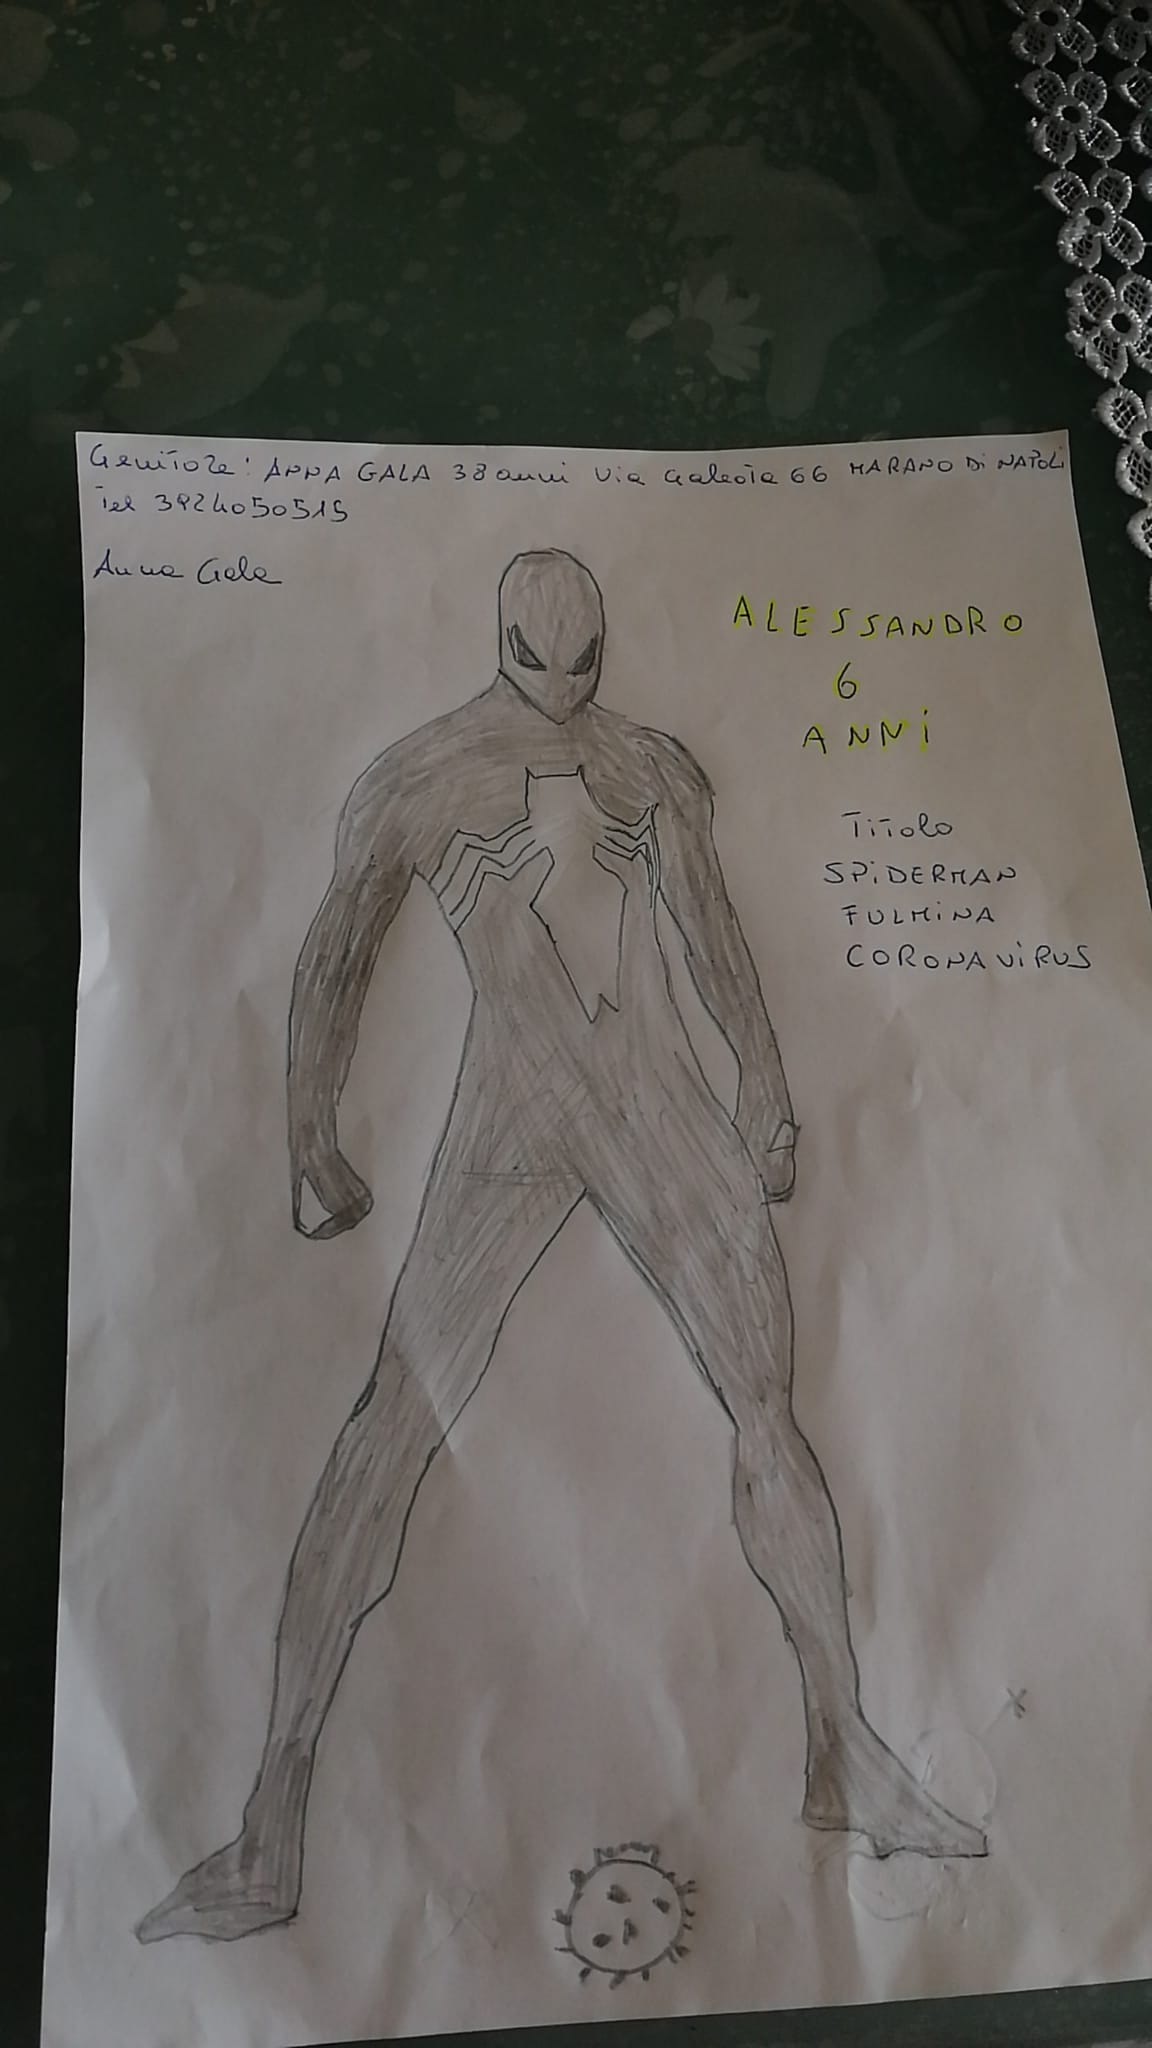 Genitore: ANNA GALA 38 anni Via Galeota 66 MARANO Di NAPOLi
Tel 3924050515
Anna Gala
ALESSANDRO
6
ANNi
TiTolo
SPiDERMAN
FULMiNA
CORONAViRUS